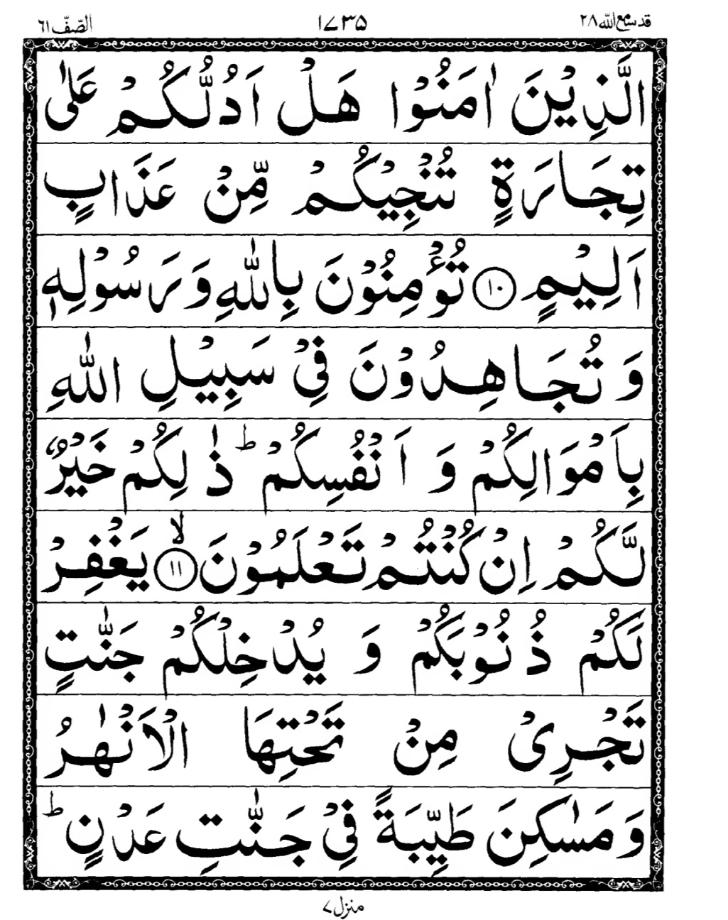 قد سمع الله ٢٨ ١٧٣٥ الصّفّ ٦١
الَّذِيْنَ اٰمَنُوْا هَلْ اَدُلُّكُمْ عَلٰى
تِجَارَةٍ تُنْجِيْكُمْ مِّنْ عَذَابٍ
اَلِيْمٍ ۝١٠ تُؤْمِنُوْنَ بِاللّٰهِ وَرَسُوْلِهٖ
وَ تُجَاهِدُوْنَ فِيْ سَبِيْلِ اللّٰهِ
بِاَمْوَالِكُمْ وَ اَنْفُسِكُمْ ؕ ذٰلِكُمْ خَيْرٌ
لَّكُمْ اِنْ كُنْتُمْ تَعْلَمُوْنَ ۙ۝١١ يَغْفِرْ
لَكُمْ ذُنُوْبَكُمْ وَ يُدْخِلْكُمْ جَنّٰتٍ
تَجْرِيْ مِنْ تَحْتِهَا الْاَنْهٰرُ
وَ مَسٰكِنَ طَيِّبَةً فِيْ جَنّٰتِ عَدْنٍ ؕ
منزل ٧